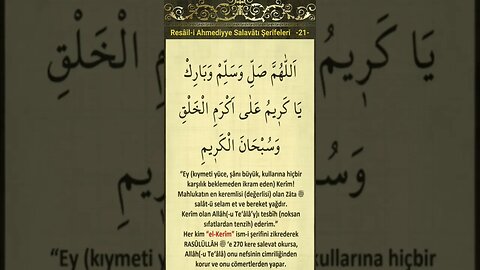 Resâil-i Ahmediyye Salavâtı Şerîfeleri -21-
اَللّٰهُمَّ صَلِّ وَسَلِّمْ وَبَارِكْ
يَا كَرِيمُ عَلٰى اَكْرَمِ الْخَلْقِ
وَسُبْحَانَ الْكَرِيمِ
“Ey (kıymeti yüce, şânı büyük, kullarına hiçbir
karşılık beklemeden ikram eden) Kerîm!
Mahlukatın en keremlisi (değerlisi) olan Zâta ﷺ
salât-ü selam et ve bereket yağdır.
Kerîm olan Allâh(-u Te‘âlâ’y)ı tesbîh (noksan
sıfatlardan tenzih) ederim.”
Her kim “el-Kerîm” ism-i şerifini zikrederek
RASÛLÜLLÂH ﷺ ’e 270 kere salevat okursa,
Allâh(-u Te‘âlâ) onu nefsinin cimriliğinden
korur ve onu cömertlerden yapar.